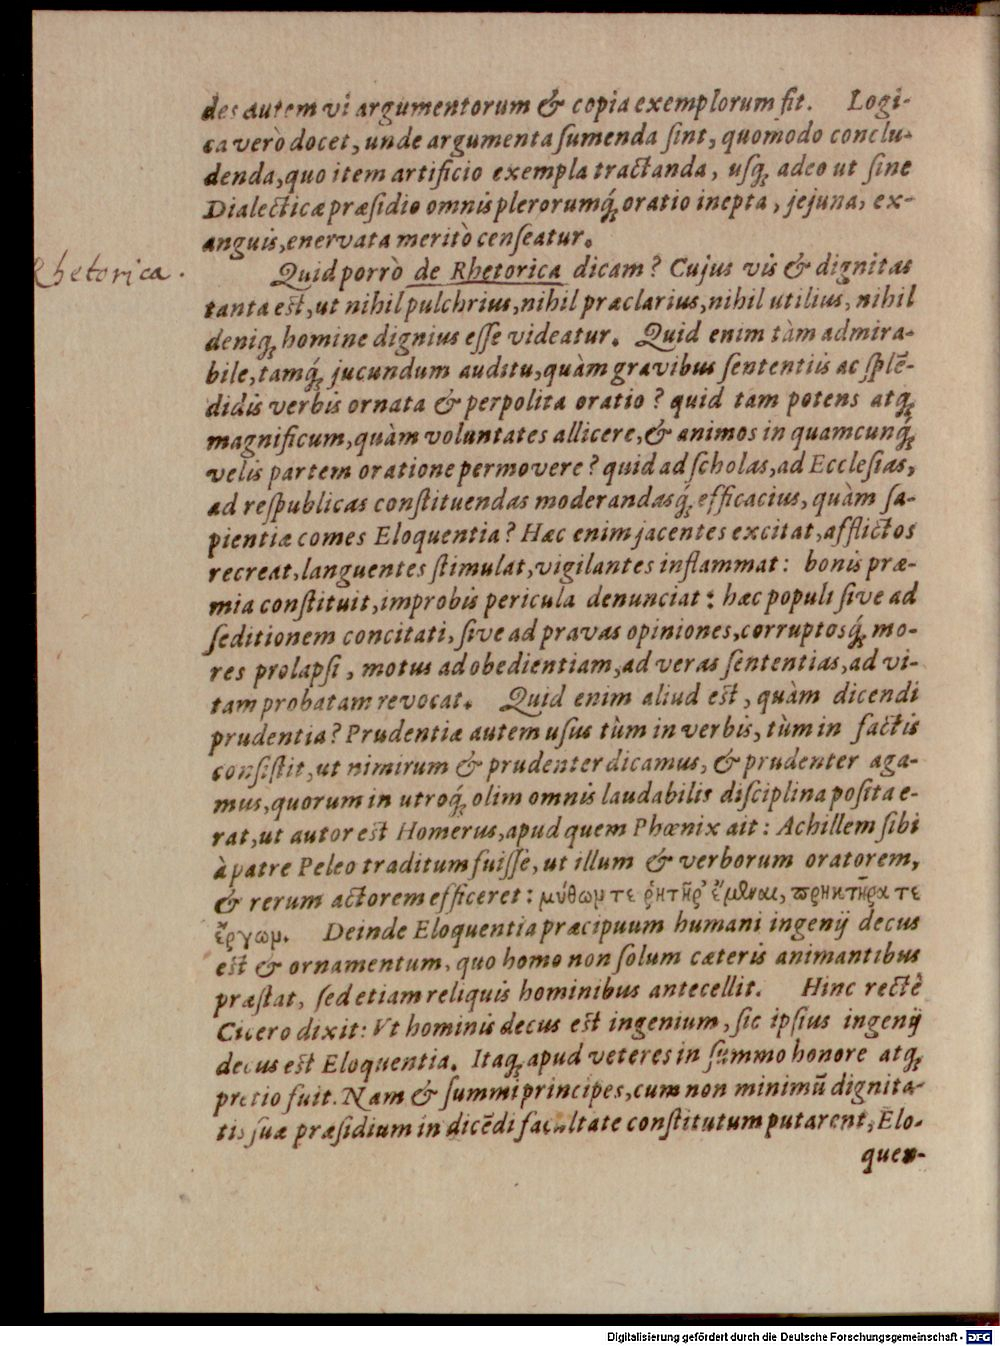 des autem vi argumentorum & copia exemplorum fit. Logi-
ca verò docet, unde argumenta sumenda sint, quomodo conclu-
denda, quo item artificio exempla tractanda, usq; adeo ut sine
Dialecticæ præsidio omnis plerorumq́; oratio inepta, jejuna, ex-
anguis, enervata meritò censeatur.
Rhetorica.
Quid porrò de Rhetorica dicam? Cujus vis & dignitas
tanta est, ut nihil pulchrius, nihil præclarius, nihil utilius, nihil
deniq; homine dignius esse videatur. Quid enim tàm admira-
bile, tamq́; jucundum auditu, quàm gravibus sententiis ac splē-
didis verbis ornata & perpolita oratio? quid tam potens atq;
magnificum, quàm voluntates allicere, & animos in quamcunq́;
velis partem oratione permovere? quid ad scholas, ad Ecclesias,
ad respublicas constituendas moderandasq́; efficacius, quàm sa-
pientiæ comes Eloquentia? Hæc enim jacentes excitat, afflictos
recreat, languentes stimulat, vigilantes inflammat: bonis præ-
mia constituit, improbis pericula denunciat: hæc populi sive ad
seditionem concitati, sive ad pravas opiniones, corruptosq́; mo-
res prolapsi, motus ad obedientiam, ad veras sententias, ad vi-
tam probatam revocat. Quid enim aliud est, quàm dicendi
prudentia? Prudentiæ autem usus tùm in verbis, tùm in factis
consistit, ut nimirum & prudenter dicamus, & prudenter aga-
mus, quorum in utroq́; olim omnis laudabilis disciplina posita e-
rat, ut autor est Homerus, apud quem Phœnix ait: Achillem sibi
à patre Peleo traditum fuisse, ut illum & verborum oratorem,
& rerum actorem efficeret: μύθωμ τε ῥητῆρ' ἔμεναι, πρηκτῆρα τε
ἔργωμ. Deinde Eloquentia præcipuum humani ingenij decus
est & ornamentum, quo homo non solum cæteris animantibus
præstat, sed etiam reliquis hominibus antecellit. Hinc rectè
Cicero dixit: Vt hominis decus est ingenium, sic ipsius ingenij
decus est Eloquentia. Itaq; apud veteres in summo honore atq;
pretio fuit. Nam & summi principes, cum non minimū dignita-
tis suæ præsidium in dicēdi facultate constitutum putarent, Elo-
quen-
Digitalisierung gefördert durch die Deutsche Forschungsgemeinschaft - DFG